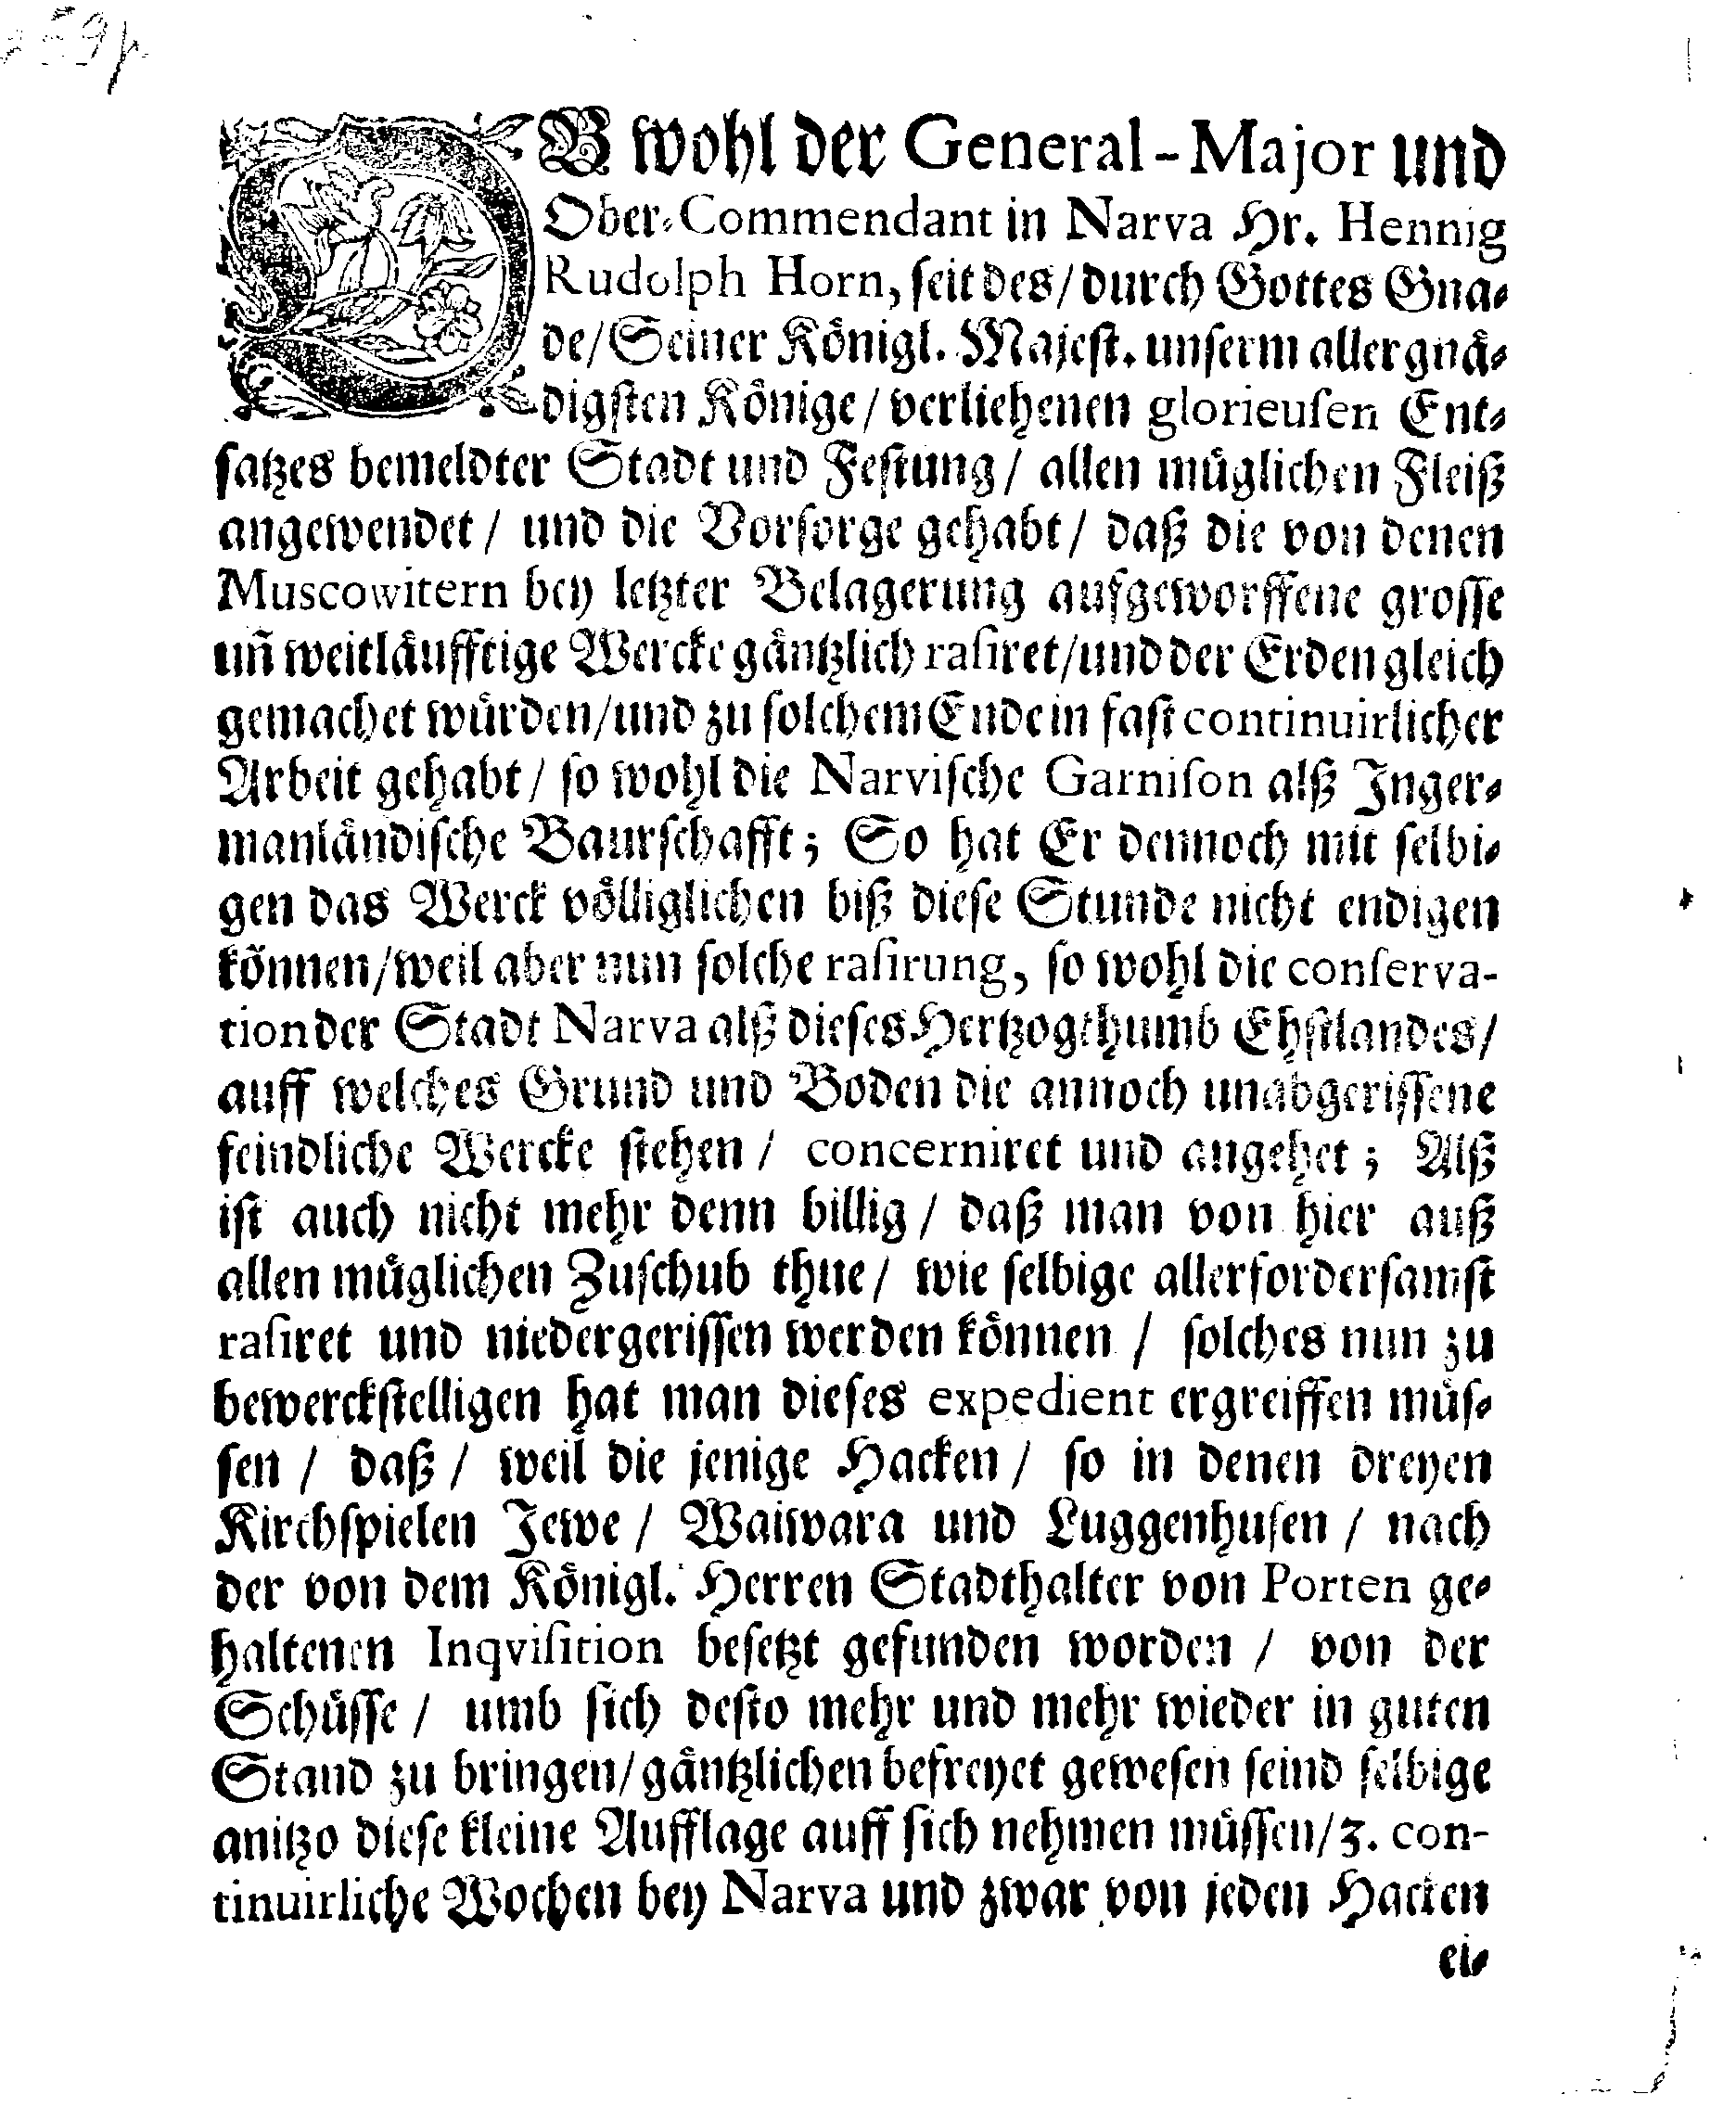 OB wohl der General-Major und
Ober-Commendant in Narva Hr. Hennig
Rudolph Horn, seit des/ durch Gottes Gna-
de/ Seiner Königl. Majest. unserm allergnä-
digsten Könige/ verliehenen glorieusen Ent-
satzes bemeldter Stadt und Festung/ allen müglichen Fleiß
angewendet/ und die Vorsorge gehabt/ daß die von denen
Muscowitern bey letzter Belagerung aufgeworffene grosse
uñ weitläufftige Wercke gäntzlich rasiret/ und der Erden gleich
gemachet würden/ und zu solchem Ende in fast continuirlicher
Arbeit gehabt/ so wohl die Narvische Garnison alß Inger-
manländische Baurschafft; So hat Er dennoch mit selbi-
gen das Werck völliglichen biß diese Stunde nicht endigen
können/ weil aber nun solche rasirung, so wohl die conserva-
tion der Stadt Narva alß dieses Hertzogthumb Ehstlandes/
auff welches Grund und Boden die annoch unabgerissene
feindliche Wercke stehen/ concerniret und angehet; Alß
ist auch nicht mehr denn billig/ daß man von hier auß
allen müglichen Zuschub thue/ wie selbige allerfordersamst
rasiret und niedergerissen werden können/ solches nun zu
bewerckstelligen hat man dieses expedient ergreiffen müs-
sen/ daß/ weil die jenige Hacken/ so in denen dreyen
Kirchspielen Jewe/ Waiwara und Luggenhusen/ nach
der von dem Königl. Herren Stadthalter von Porten ge-
haltenen Inqvisition besetzt gefunden worden/ von der
Schüsse/ umb sich desto mehr und mehr wieder in guten
Stand zu bringen/ gäntzlichen befreyet gewesen seind selbige
anitzo diese kleine Aufflage auff sich nehmen müssen/ 3. con-
tinuirliche Wochen bey Narva und zwar von jeden Hacken
ei-